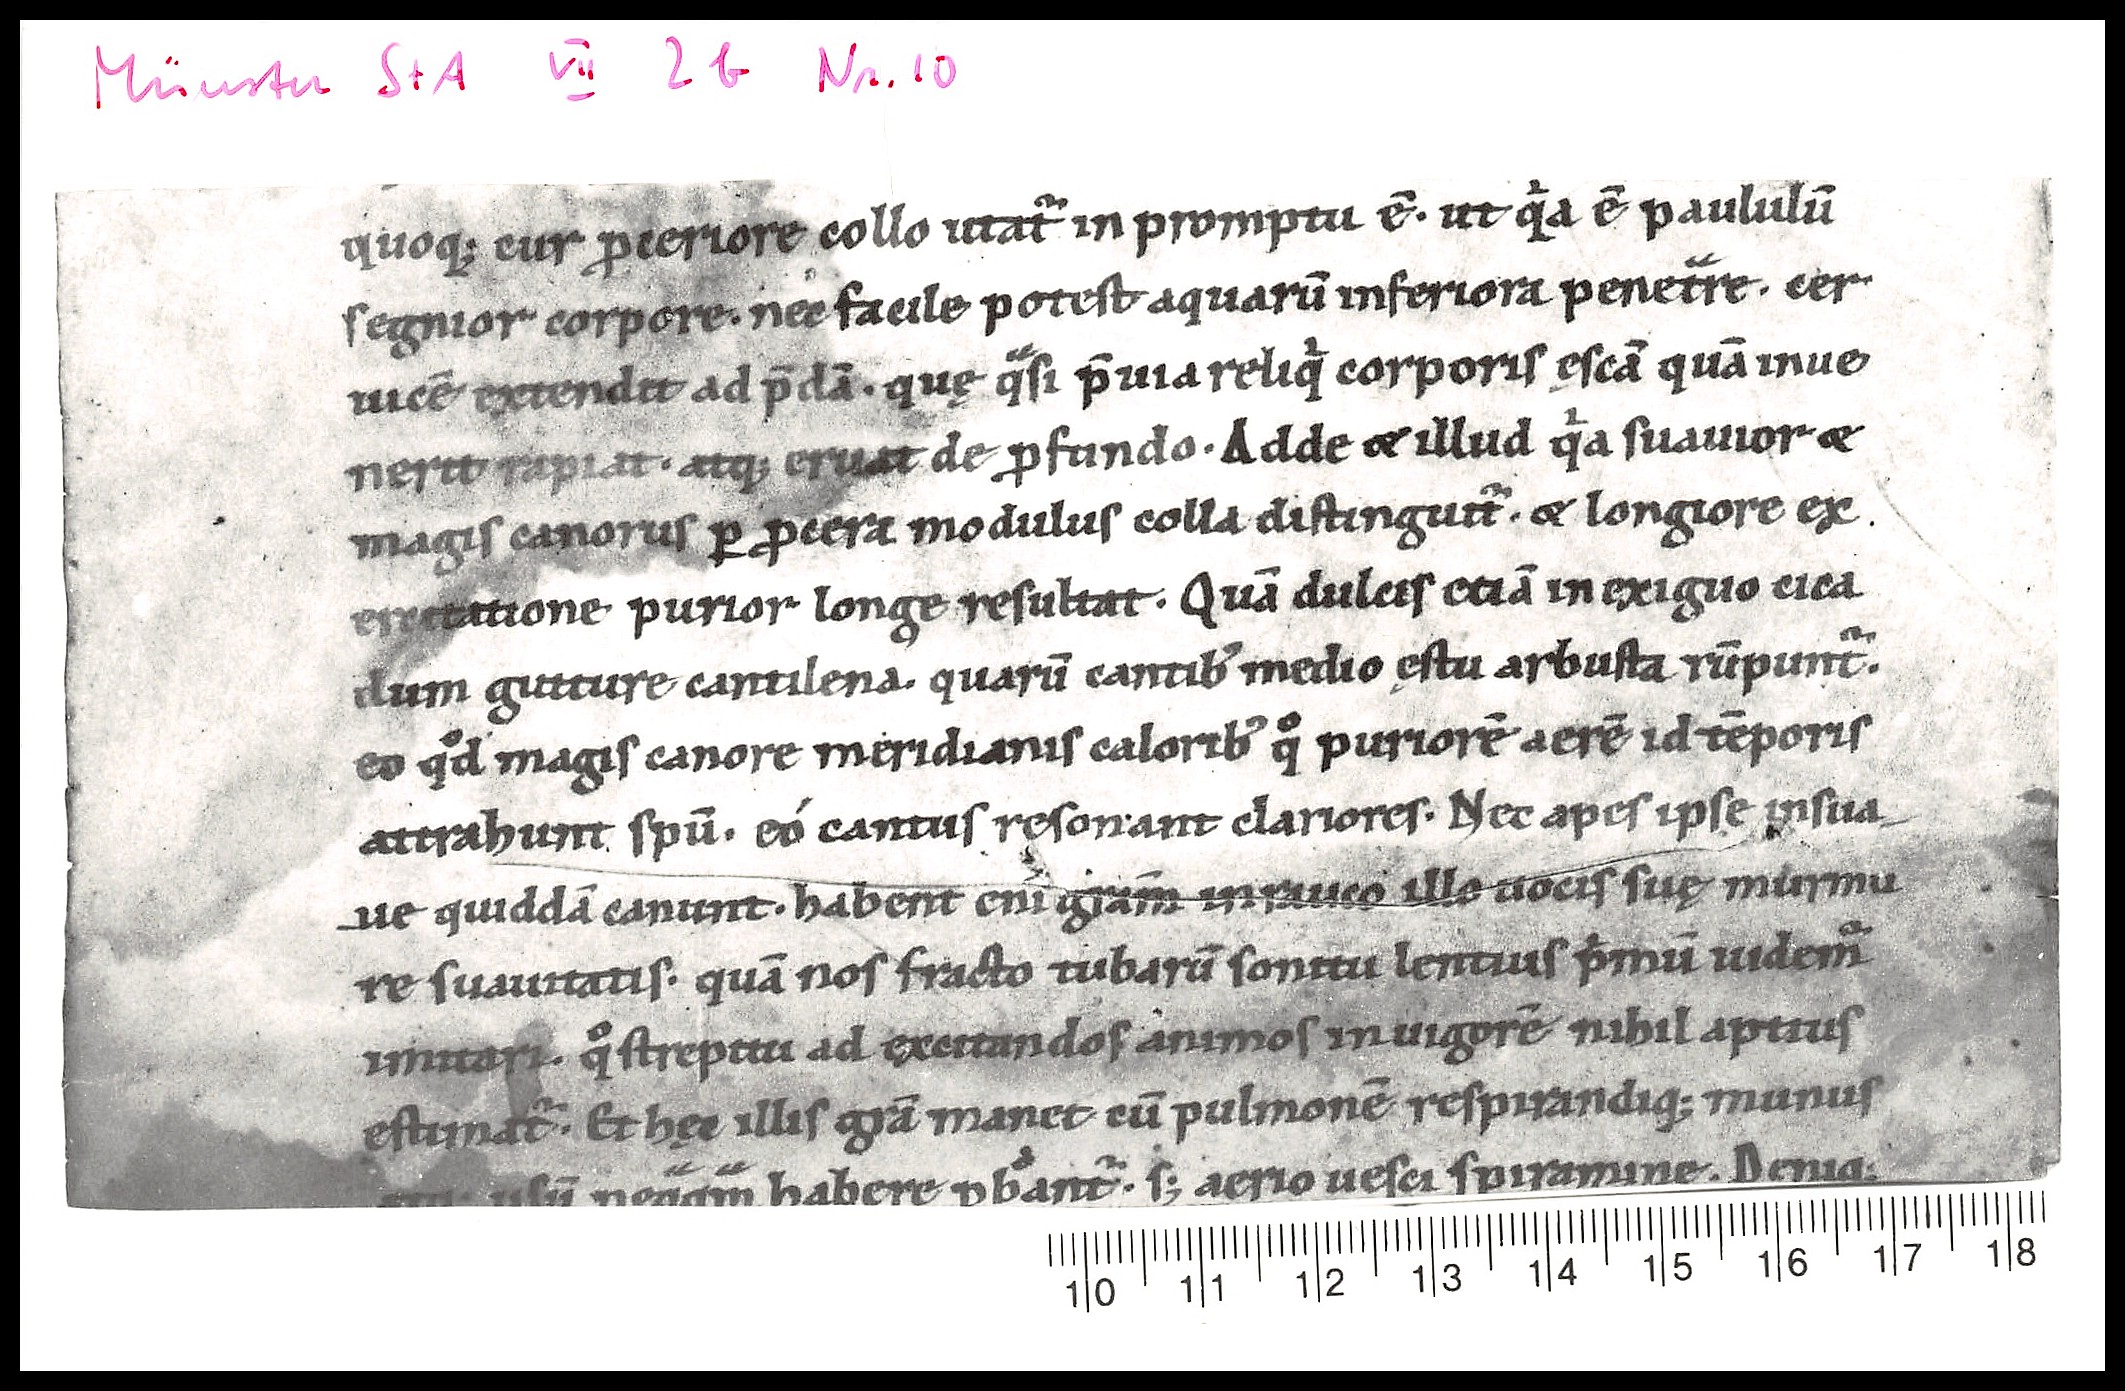 Münster StA VII 2b Nr. 10
quoq; cur p̱ceriore collo utat᷑ in promptu ē. ut qͥa ē paululū
segnior corpore. nec facile potest aquarū inferiora penetᷓre. cer
uicē extendit ad p̄dā. quę qᷓsi p̄uia reliqͥ corporis ęscā quā inue
nerit rapiat. atq; eruat de ꝓfundo. Adde & illud qͥa suauior &
magis canorus ꝑ ꝓcera modulus colla distinguit᷑. & longiore ex
ercitatione purior longe resultat. Quā dulcis etiā in exiguo cica
dum gutture cantilena. quarū cantibꝰ medio ęstu arbusta rūpunt᷑.
eo qͦd magis canore meridianis caloribꝰ qͦ puriorē aerē id tēporis
attrahunt spū. eó cantus resonant clariores. Nec apes ipse insua
ue quiddā canunt. habent eni gr̄am in rauco illo uocis suę murmu
re suauitatis. quā nos fracto tubarū sonitu lentius pͥmū uidem᷑
imitari. qͦ strepitu ad excitandos animos in uigorē nihil aptius
estimat᷑. Et hęc illis gr̄a manet cū pulmonē respirandiq; munus
usū neqᷓqᷓm habere ꝓbant᷑. s; aerio uesci spiramine. Deniq;
10 11 12 13 14 15 16 17 18